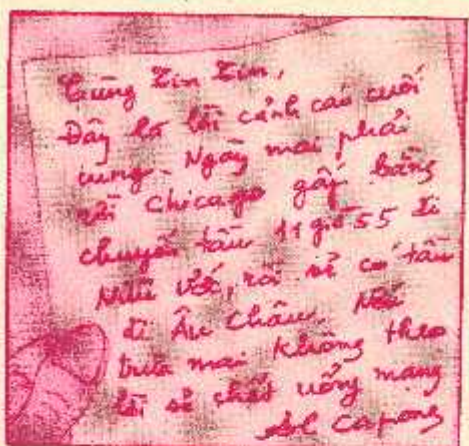 Cùng Tin Tin,
Đây là lời cảnh cáo cuối
cùng. Ngày mai phải
rời Chicago gấp bằng
chuyến tàu 11 giờ 55 đi
Nữu Ước, rồi sẽ có tàu
đi Âu Châu. Nếu
trưa mai không theo
lời sẽ chết uổng mạng
Al Capone